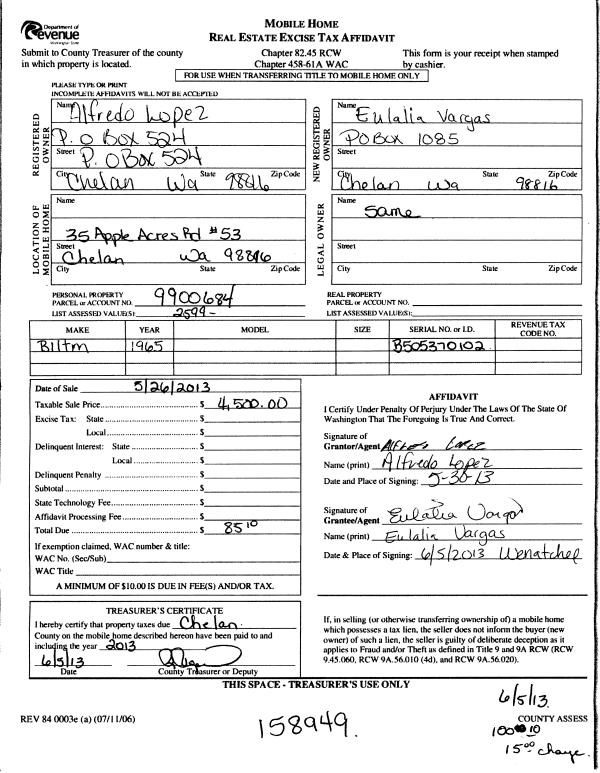 Department of
Revenue
Washington State
MOBILE HOME
REAL ESTATE EXCISE TAX AFFIDAVIT
Submit to County Treasurer of the county
in which property is located.
Chapter 82.45 RCW
Chapter 458-61A WAC
This form is your receipt when stamped
by cashier.
FOR USE WHEN TRANSFERRING TITLE TO MOBILE HOME ONLY
PLEASE TYPE OR PRINT
INCOMPLETE AFFIDAVITS WILL NOT BE ACCEPTED
REGISTERED OWNER
Name Alfredo Lopez
P. O Box 524
Street P. O Box 524
Chelan Wa 98816
City State Zip Code
NEW REGISTERED OWNER
Name Eulalia Vargas
PO Box 1085
Street
Chelan Wa 98816
City State Zip Code
LOCATION OF MOBILE HOME
Name
35 Apple Acres Rd #53
Street
Chelan Wa 98816
City State Zip Code
LEGAL OWNER
Name
Same
Street
City State Zip Code
PERSONAL PROPERTY
PARCEL or ACCOUNT NO. 9900684
LIST ASSESSED VALUE(S): 2599-
REAL PROPERTY
PARCEL or ACCOUNT NO.
LIST ASSESSED VALUE(S):
MAKE YEAR MODEL SIZE SERIAL NO. or I.D. REVENUE TAX CODE NO.
Biltm 1965 B505370102
Date of Sale 5/26/2013
Taxable Sale Price $ 4,500.00
Excise Tax: State $
Local $
Delinquent Interest: State $
Local $
Delinquent Penalty $
Subtotal $
State Technology Fee $
Affidavit Processing Fee $
Total Due $ 85 10
If exemption claimed, WAC number & title:
WAC No. (Sec/Sub)
WAC Title
A MINIMUM OF $10.00 IS DUE IN FEE(S) AND/OR TAX.
AFFIDAVIT
I Certify Under Penalty Of Perjury Under The Laws Of The State Of
Washington That The Foregoing Is True And Correct.
Signature of
Grantor/Agent Alfredo Lopez
Name (print) Alfredo Lopez
Date and Place of Signing: 5-30-13
Signature of
Grantee/Agent Eulalia Vargas
Name (print) Eulalia Vargas
Date & Place of Signing: 6/5/2013 Wenatchee
TREASURER'S CERTIFICATE
I hereby certify that property taxes due Chelan
County on the mobile home described hereon have been paid to and
including the year 2013
6/5/13
Date County Treasurer or Deputy
If, in selling (or otherwise transferring ownership of) a mobile home
which possesses a tax lien, the seller does not inform the buyer (new
owner) of such a lien, the seller is guilty of deliberate deception as it
applies to Fraud and/or Theft as defined in Title 9 and 9A RCW (RCW
9.45.060, RCW 9A.56.010 (4d), and RCW 9A.56.020).
THIS SPACE - TREASURER'S USE ONLY
6/5/13
REV 84 0003e (a) (07/11/06)
158949.
COUNTY ASSESS
100 10
15 00 change